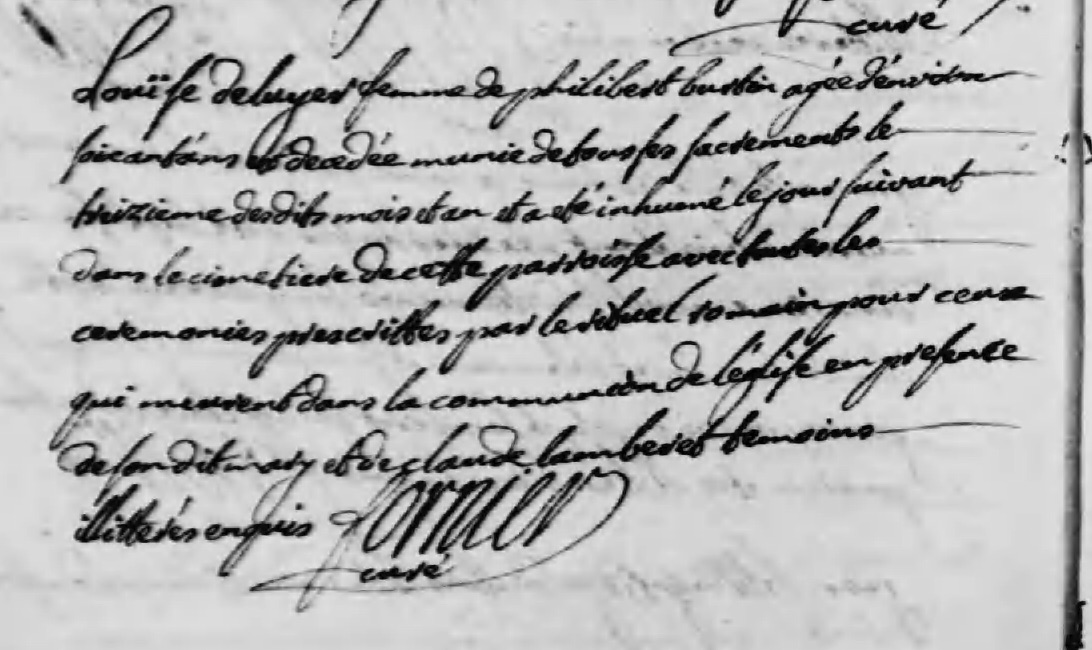 curé
Louïse deluyer femme de philibert burtin agée d'environ
soixantáns est decedée munie de tous ses sacrements le
treizieme desdits mois et an et a eté inhumé le jour suivant
dans le cimetiere de cette parroisse avec toutes les
ceremonies prescrittes par le rituel romain pour ceux
qui meurent dans la communion de l'église en presence
de son dit mary et de claude lamberet temoins
illitterés enquis fornier
curé